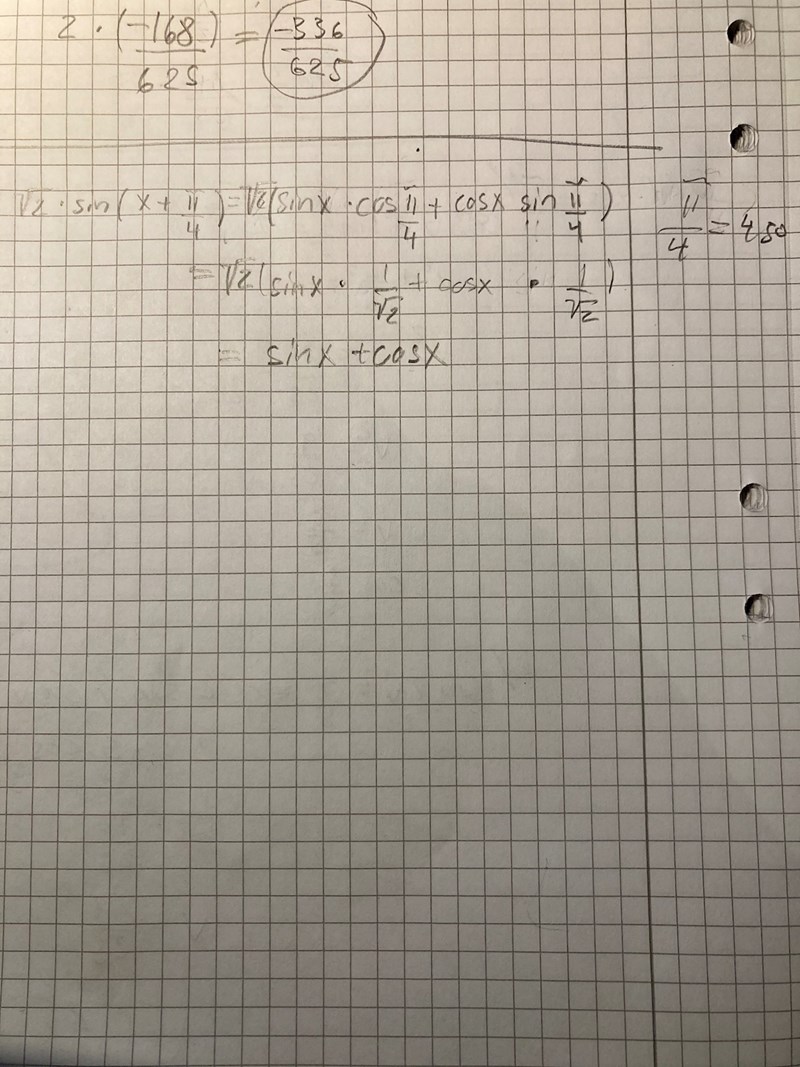 2 · (-168/625) = -336/625
√2 · sin(x + π/4) = √2(sinx · cos π/4 + cosx sin π/4) π/4 = 45°
= √2(sinx · 1/√2 + cosx · 1/√2)
= sinx + cosx